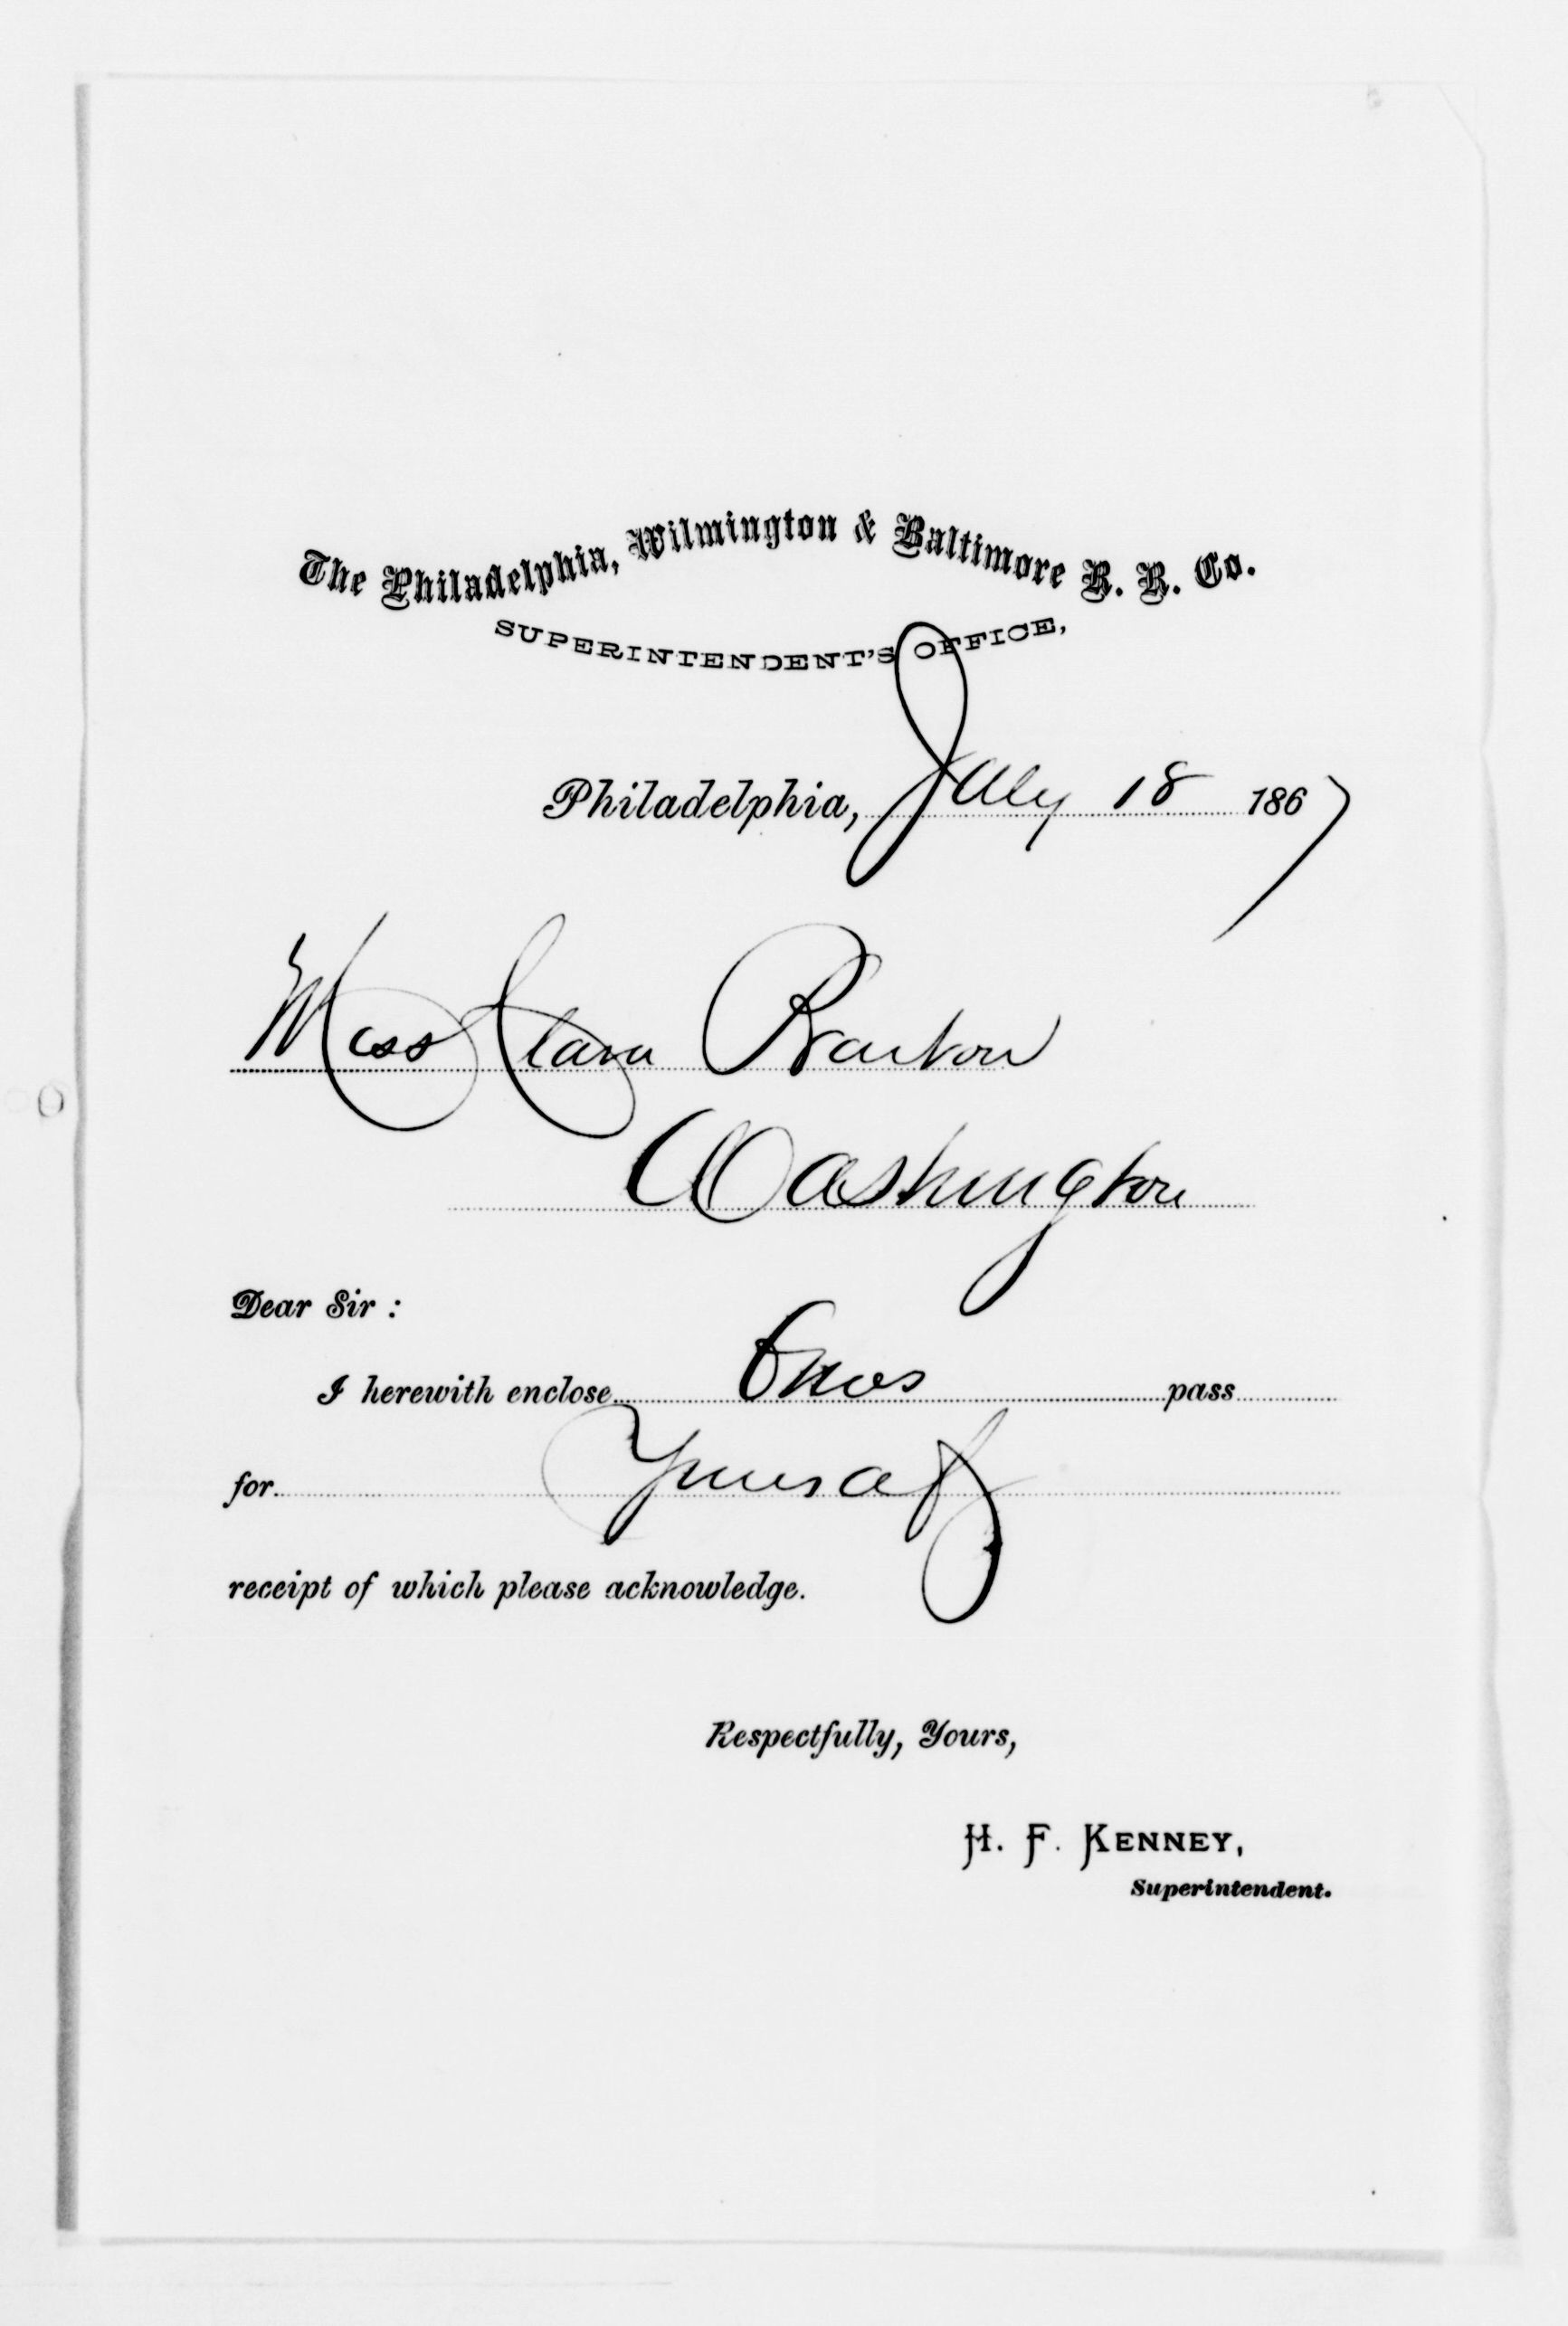 The Philadelphia, Wilmington & Baltimore R. R. Co.
SUPERINTENDENT'S OFFICE,
Philadelphia, July 18 1867
Miss Clara Barton
Washington
Dear Sir :
I herewith enclose pass
for Yourself
receipt of which please acknowledge.
Respectfully, Yours,
H. F. KENNEY,
Superintendent.